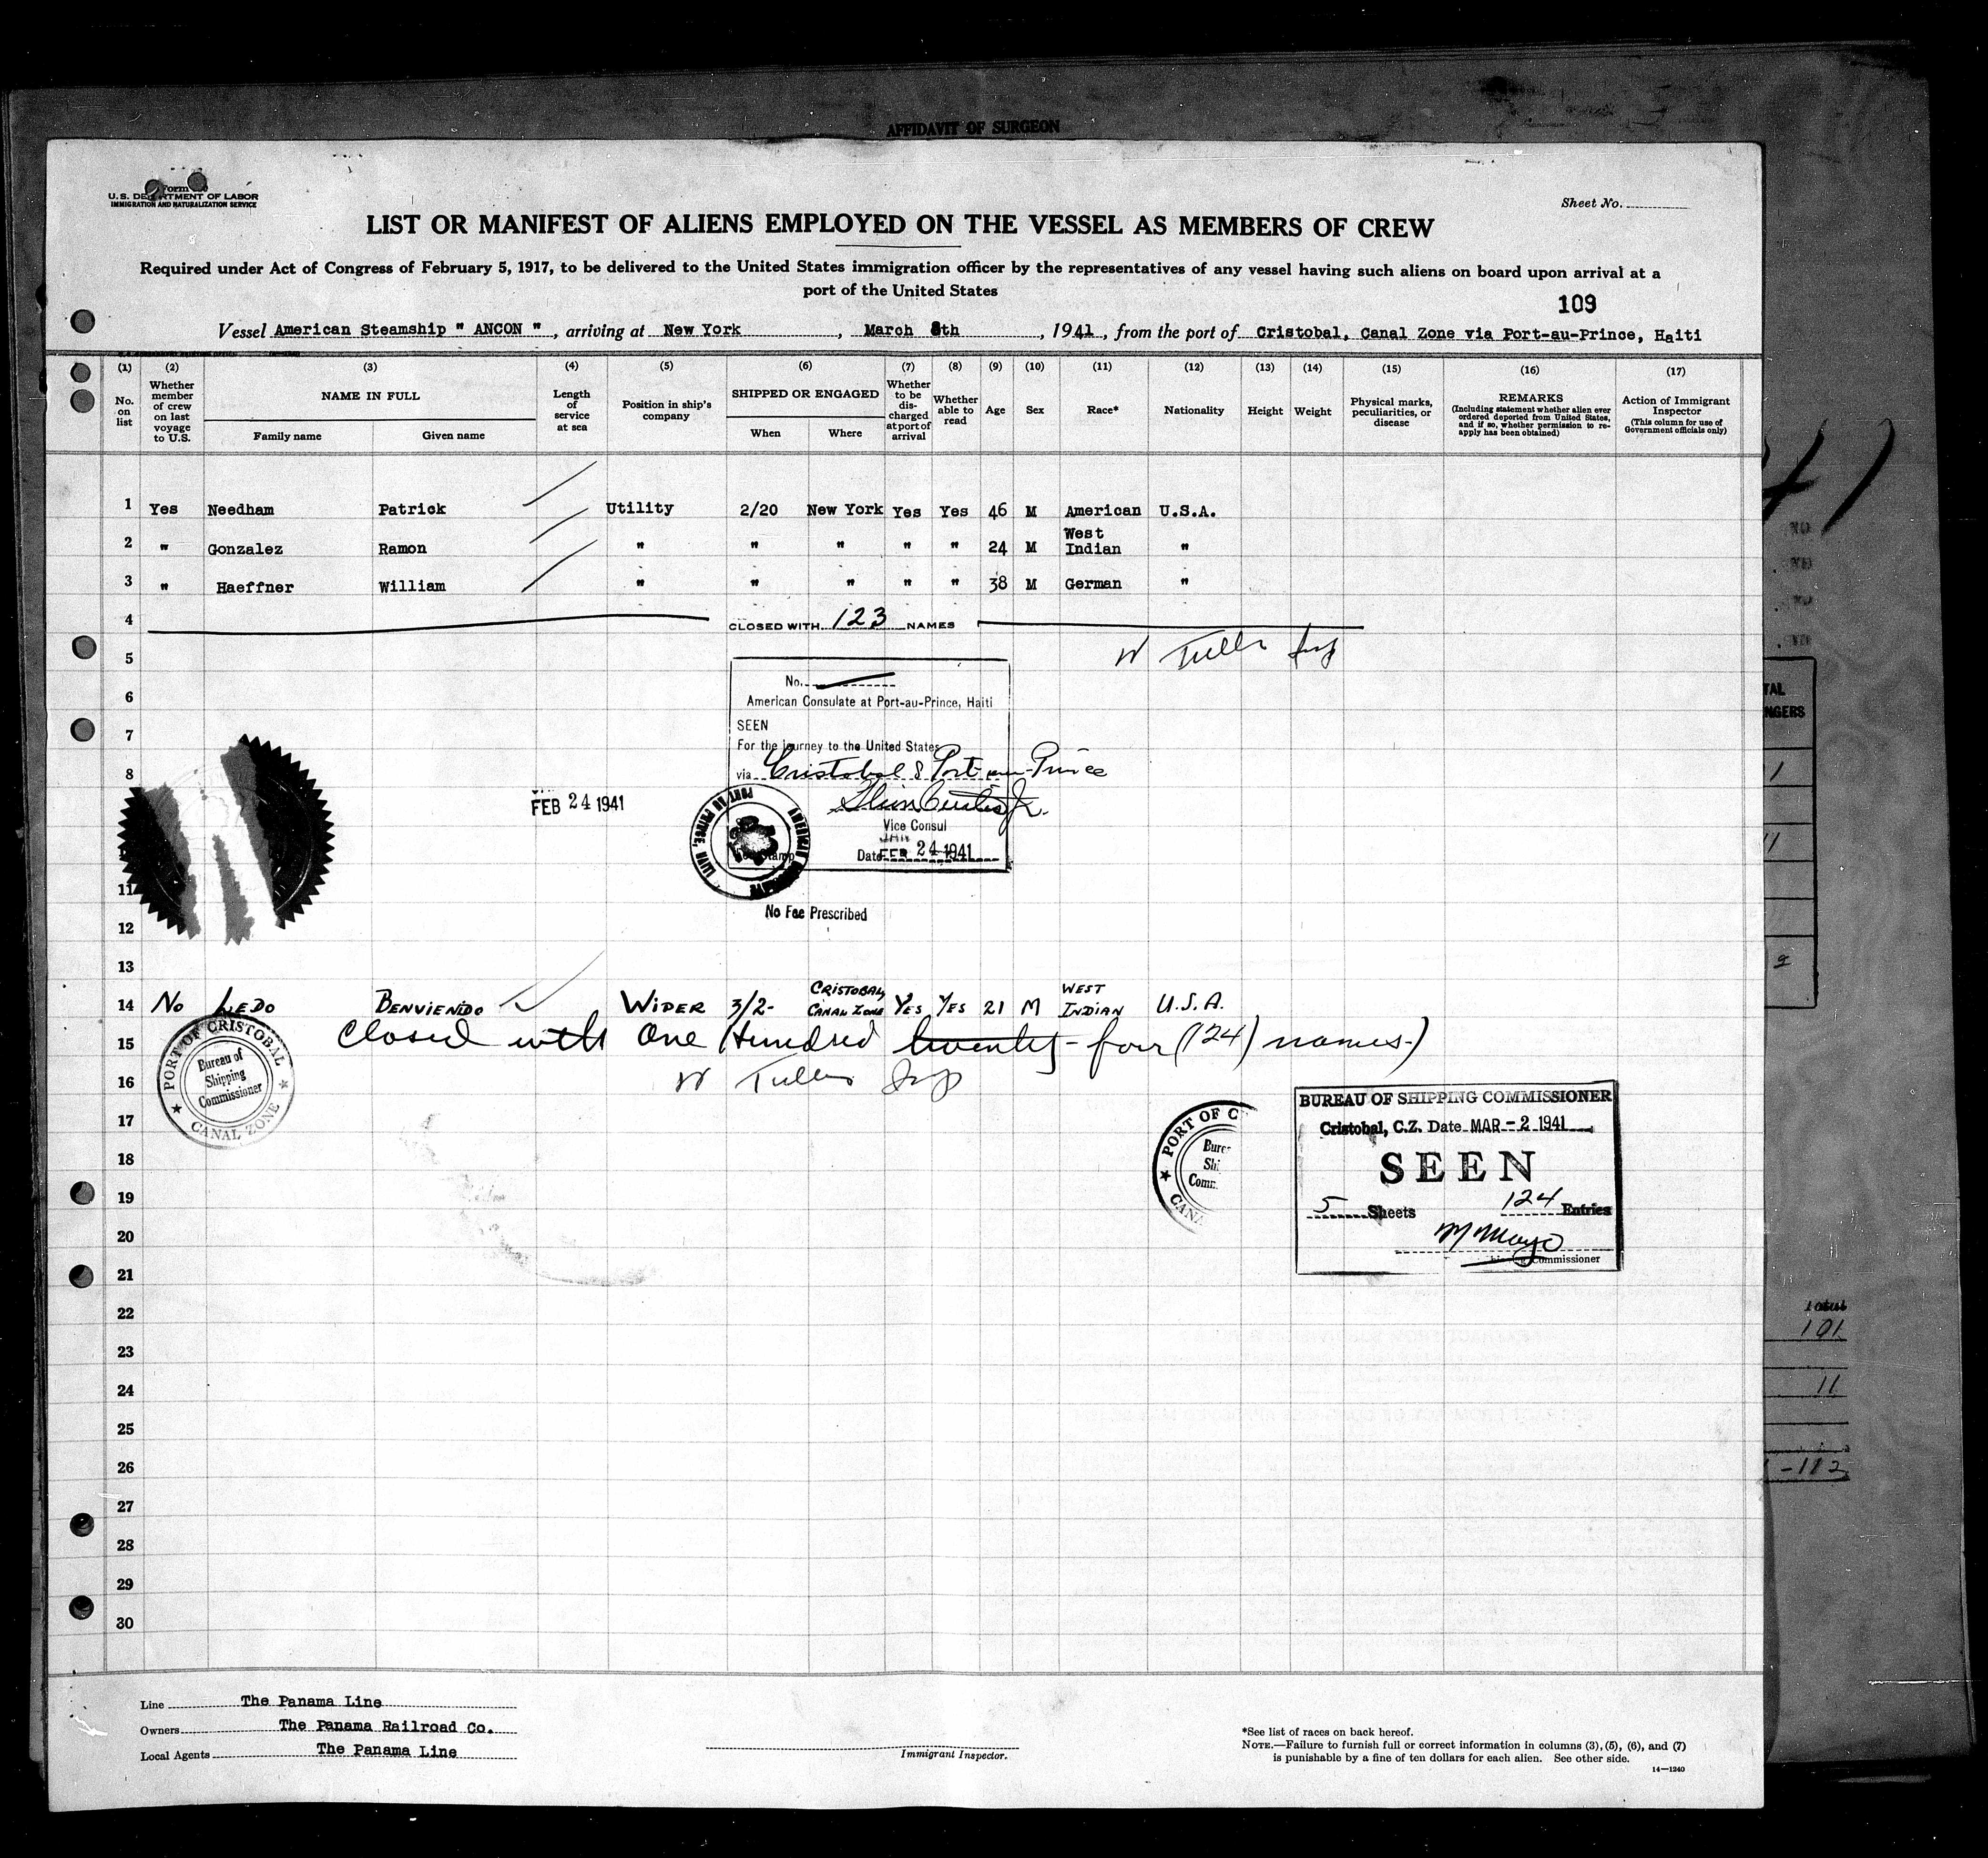 AFFIDAVIT OF SURGEON
Form
U.S. DEPARTMENT OF LABOR
IMMIGRATION AND NATURALIZATION SERVICE
Sheet No.
LIST OR MANIFEST OF ALIENS EMPLOYED ON THE VESSEL AS MEMBERS OF CREW
Required under Act of Congress of February 5, 1917, to be delivered to the United States immigration officer by the representatives of any vessel having such aliens on board upon arrival at a
port of the United States
109
Vessel American Steamship " ANCON ", arriving at New York, March 8th, 1941, from the port of Cristobal, Canal Zone via Port-au-Prince, Haiti
(1) (2) (3) (4) (5) (6) (7) (8) (9) (10) (11) (12) (13) (14) (15) (16) (17)
No. on list
Whether member of crew on last voyage to U.S.
NAME IN FULL
Family name
Given name
Length of service at sea
Position in ship's company
SHIPPED OR ENGAGED
When
Where
Whether to be discharged at port of arrival
Whether able to read
Age
Sex
Race*
Nationality
Height
Weight
Physical marks, peculiarities, or disease
REMARKS
(Including statement whether alien ever ordered deported from United States, and if so, whether permission to re-apply has been obtained)
Action of Immigrant Inspector
(This column for use of Government officials only)
1 Yes Needham Patrick Utility 2/20 New York Yes Yes 46 M American U.S.A.
2 " Gonzalez Ramon " " " " " 24 M West Indian "
3 " Haeffner William " " " " " 38 M German "
4 CLOSED WITH 123 NAMES
5 W Tulle
6 No.
American Consulate at Port-au-Prince, Haiti
7 SEEN
For the journey to the United States
8 via Cristobal & Port au Prince
FEB 24 1941
Vice Consul
JAN
Date FEB 24 1941
AMERICAN CONSULATE PORT AU PRINCE, HAITI
11
No Fee Prescribed
12
13
14 No LEDO BENVIENDO WIDER 3/2- CRISTOBAL, CANAL ZONE YES YES 21 M WEST INDIAN U.S.A.
15 Closed with One Hundred twenty-four (124) names-)
16 W Tulle
PORT OF CRISTOBAL
Bureau of
Shipping
Commissioner
CANAL ZONE
PORT OF C
Bure
Shi
Comm
CANA
BUREAU OF SHIPPING COMMISSIONER
17 Cristobal, C.Z. Date MAR - 2 1941
18 SEEN
19 5 Sheets 124 Entries
20 M Mayo
Commissioner
21
22
23
24
25
26
27
28
29
30
Line The Panama Line
Owners The Panama Railroad Co.
Local Agents The Panama Line
Immigrant Inspector.
*See list of races on back hereof.
NOTE.—Failure to furnish full or correct information in columns (3), (5), (6), and (7)
is punishable by a fine of ten dollars for each alien. See other side.
14—1240
Total
101
11
112